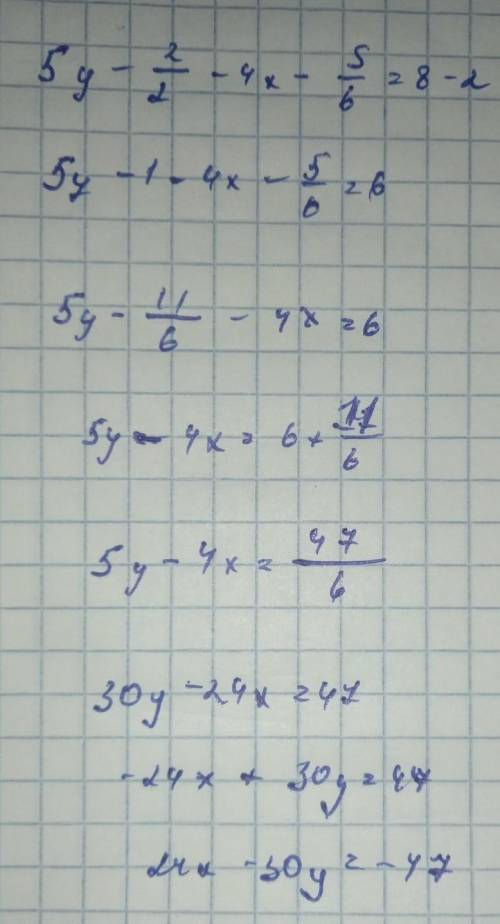 5y - 2/2 - 4x - 5/6 = 8 - 2
5y - 1 - 4x - 5/6 = 6
5y - 11/6 - 4x = 6
5y - 4x = 6 + 11/6
5y - 4x = 47/6
30y - 24x = 47
-24x + 30y = 47
24x - 30y = -47